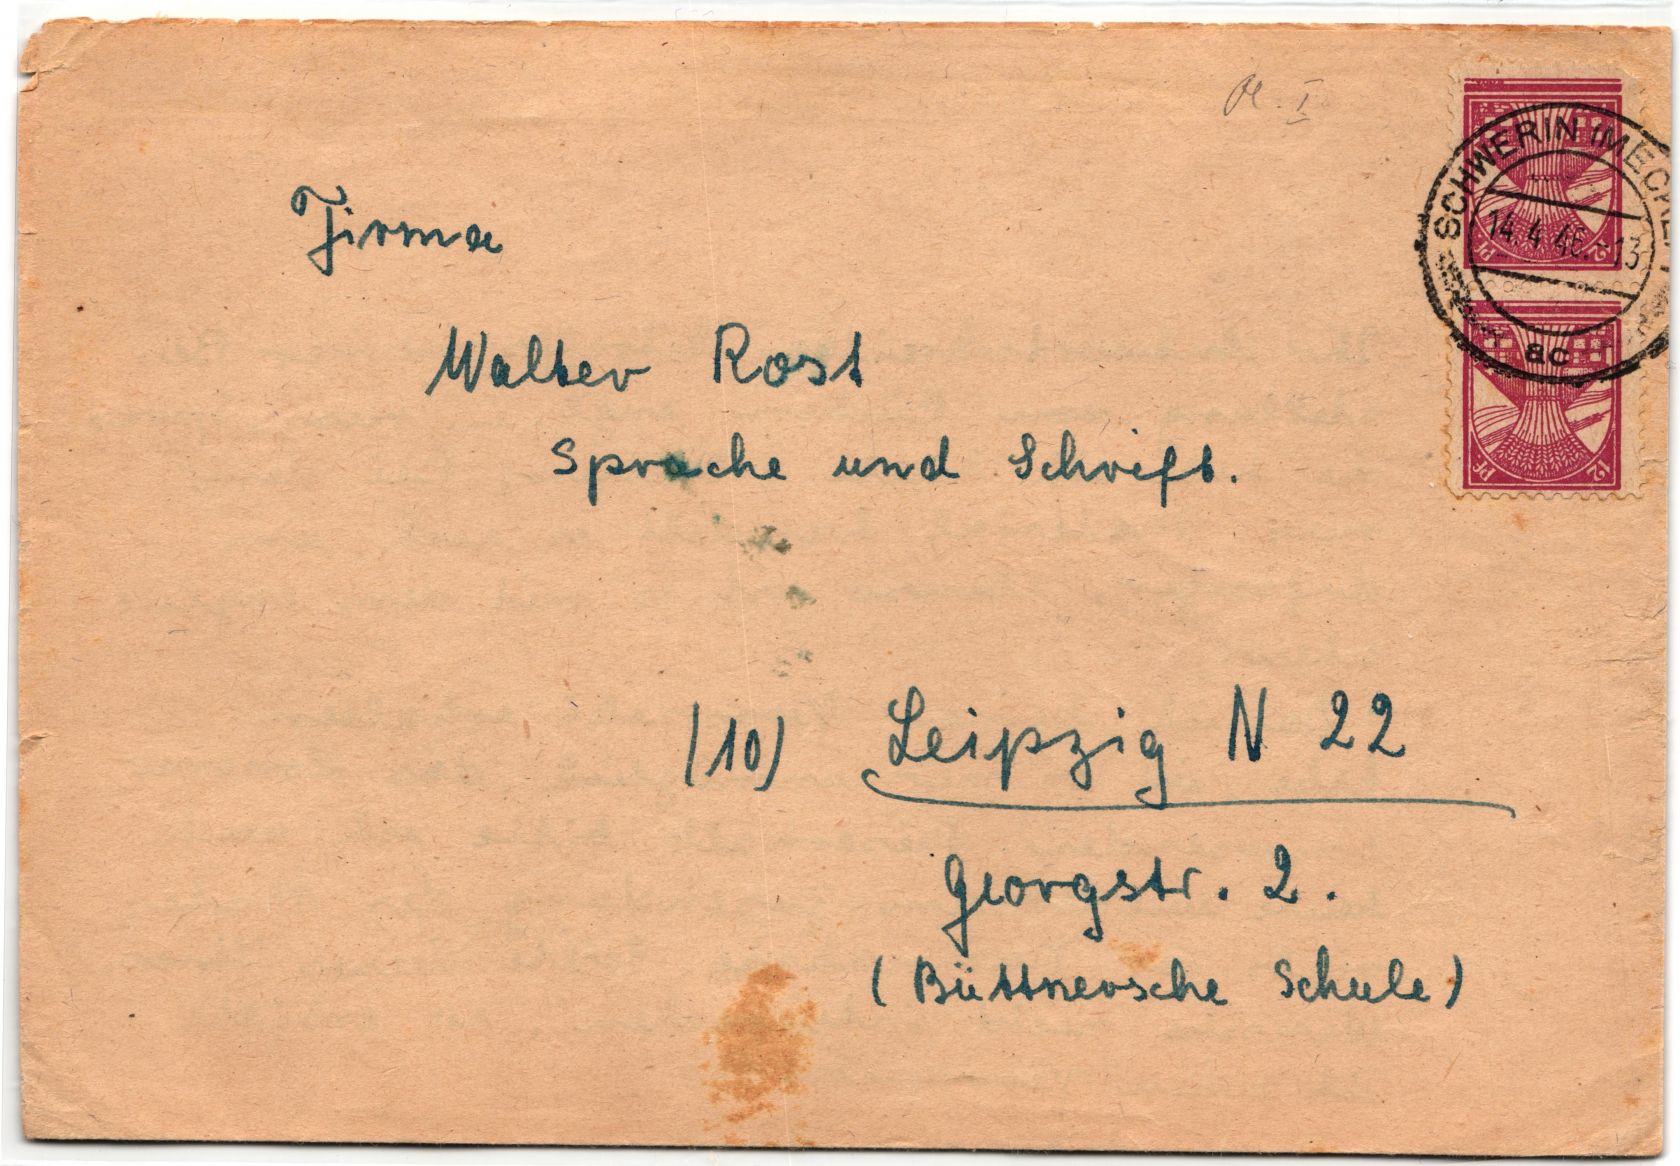 Pl. I
SCHWERIN (MECKL
14.4.46.-13
ac
Pf 12
Pf 12
Firma
Walter Rost
Sprache und Schrift.
(10) Leipzig N 22
Georgstr. 2.
(Büttnersche Schule)